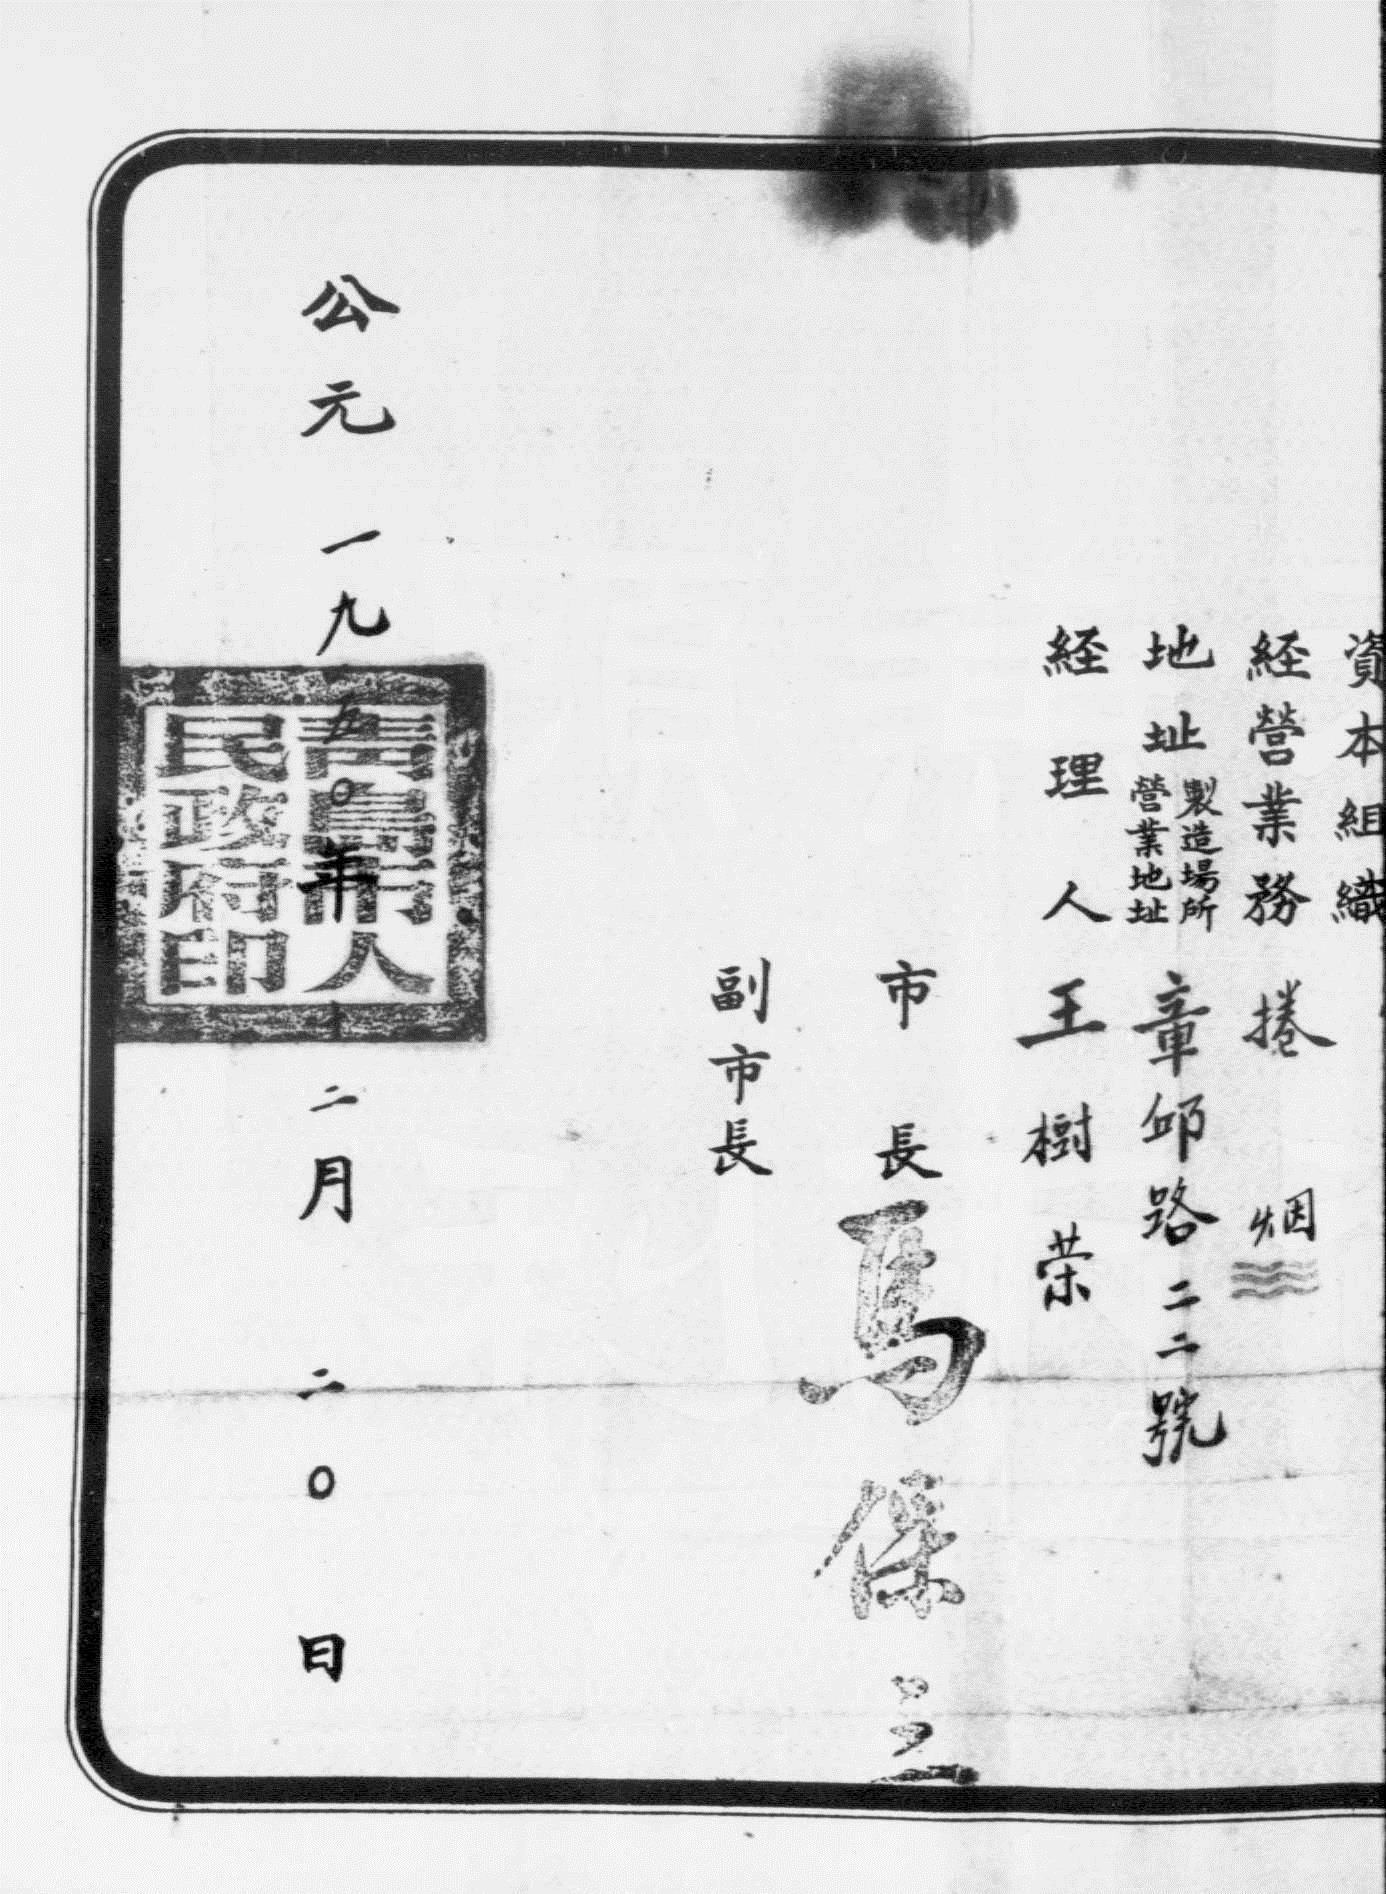 資本組織
経營業務 捲烟
地址 製造場所 營業地址 章邱路二二號
経理人 王樹荣
市長 馬保三
副市長
公元一九五0年十二月二0日
青島市人
民政府印